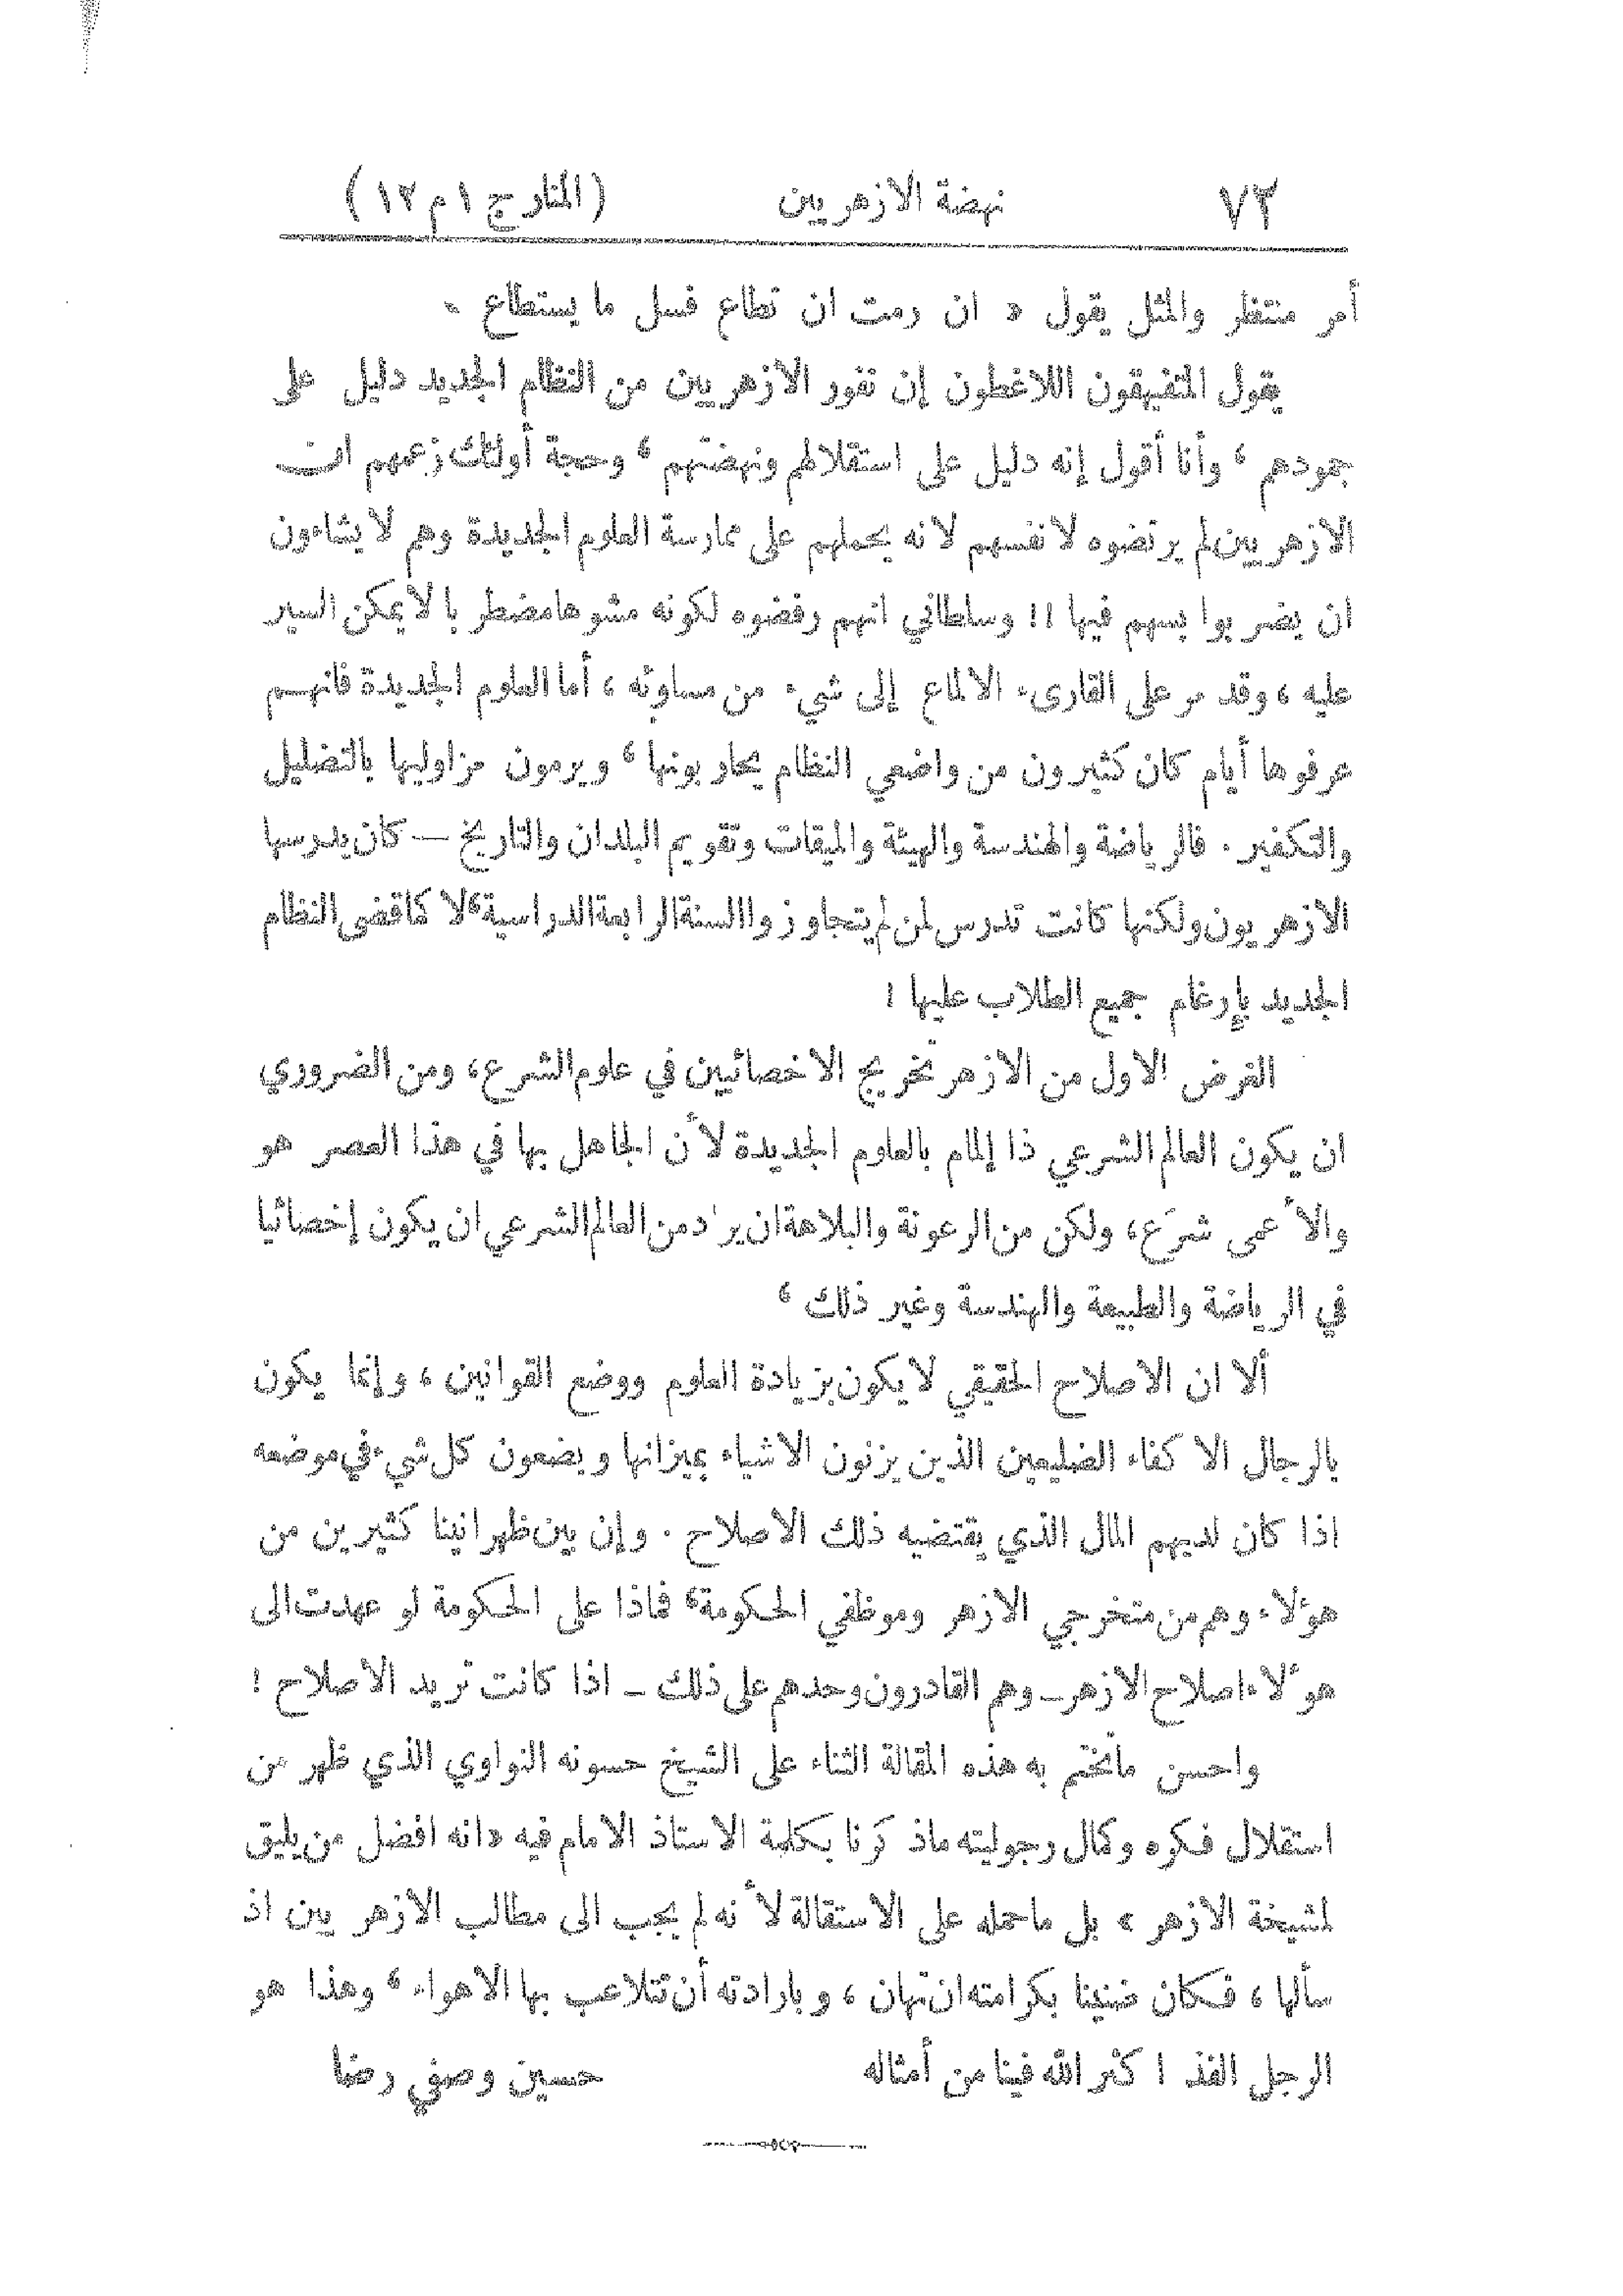 ٧٢ نهضة الازهريين (المنار ج ١ م ١٢)
أمر منتظر والمثل يقول « ان رمت ان تطاع فسل ما يستطاع »
يقول المتفيهقون اللاغطون إن نفور الازهريين من النظام الجديد دليل على
جمودهم ، وأنا أقول إنه دليل على استقلالهم ونهضتهم ، وحجة أولئك زعمهم ان
الازهريين لم يرتضوه لانفسهم لانه يحملهم على ممارسة العلوم الجديدة وهم لا يشاءون
ان يضربوا بسهم فيها !! وسلطاني انهم رفضوه لكونه مشوها مضطربا لا يمكن السير
عليه ، وقد مر على القارىء الالماع إلى شيء من مساوئه ، أما العلوم الجديدة فانهم
عرفوها أيام كان كثيرون من واضعي النظام يحاربونها ، ويرمون مزاوليها بالتضليل
والتكفير . فالرياضة والهندسة والهيئة والميقات وتقويم البلدان والتاريخ — كان يدرسها
الازهريون ولكنها كانت تدرس لمن لم يتجاوزوا السنة الرابعة الدراسية ، لا كما قضى النظام
الجديد بإرغام جميع الطلاب عليها !
الغرض الاول من الازهر تخريج الاخصائيين في علوم الشرع ، ومن الضروري
ان يكون العالم الشرعي ذا إلمام بالعلوم الجديدة لأن الجاهل بها في هذا العصر هو
والأعمى شرَع ، ولكن من الرعونة والبلاهة ان يراد من العالم الشرعي ان يكون إخصائيا
في الرياضة والطبيعة والهندسة وغير ذلك ،
ألا ان الاصلاح الحقيقي لا يكون بزيادة العلوم ووضع القوانين ، وإنما يكون
بالرجال الا كفاء الضليعين الذين يزنون الاشياء بميزانها ويضعون كل شيء في موضعه
اذا كان لديهم المال الذي يقتضيه ذلك الاصلاح . وإن بين ظهرانينا كثيرين من
هؤلاء وهم من متخرجي الازهر وموظفي الحكومة ، فماذا على الحكومة لو عهدت الى
هؤلاء اصلاح الازهر ــ وهم القادرون وحدهم على ذلك ــ اذا كانت تريد الاصلاح !
واحسن ما نختم به هذه المقالة الثناء على الشيخ حسونه النواوي الذي ظهر من
استقلال فكره وكمال رجوليته ما ذكرنا بكلمة الاستاذ الامام فيه « انه افضل من يليق
لمشيخة الازهر » بل ما حمله على الاستقالة لأنه لم يجب الى مطالب الازهريين اذ
سألها ، فكان ضنينا بكرامته ان تهان ، وبارادته أن تتلاعب بها الاهواء ، وهذا هو
الرجل الفذ ا كثر الله فينا من أمثاله حسين وصفي رضا